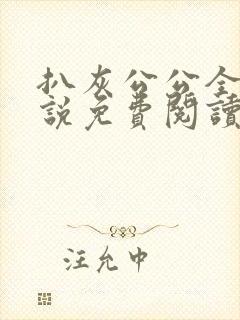 扒灰公公全
説免費閱讀
汪允中